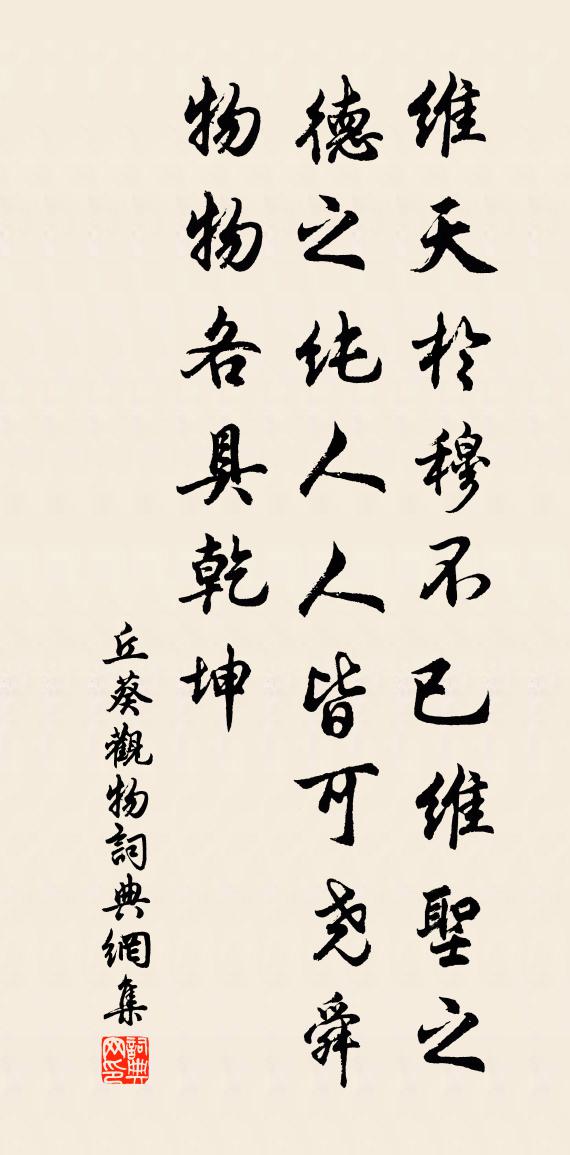 維天於穆不已維聖之
德之纯人人皆可尧舜
物物各具乾坤
丘葵觀物詞典網集
詞典网印